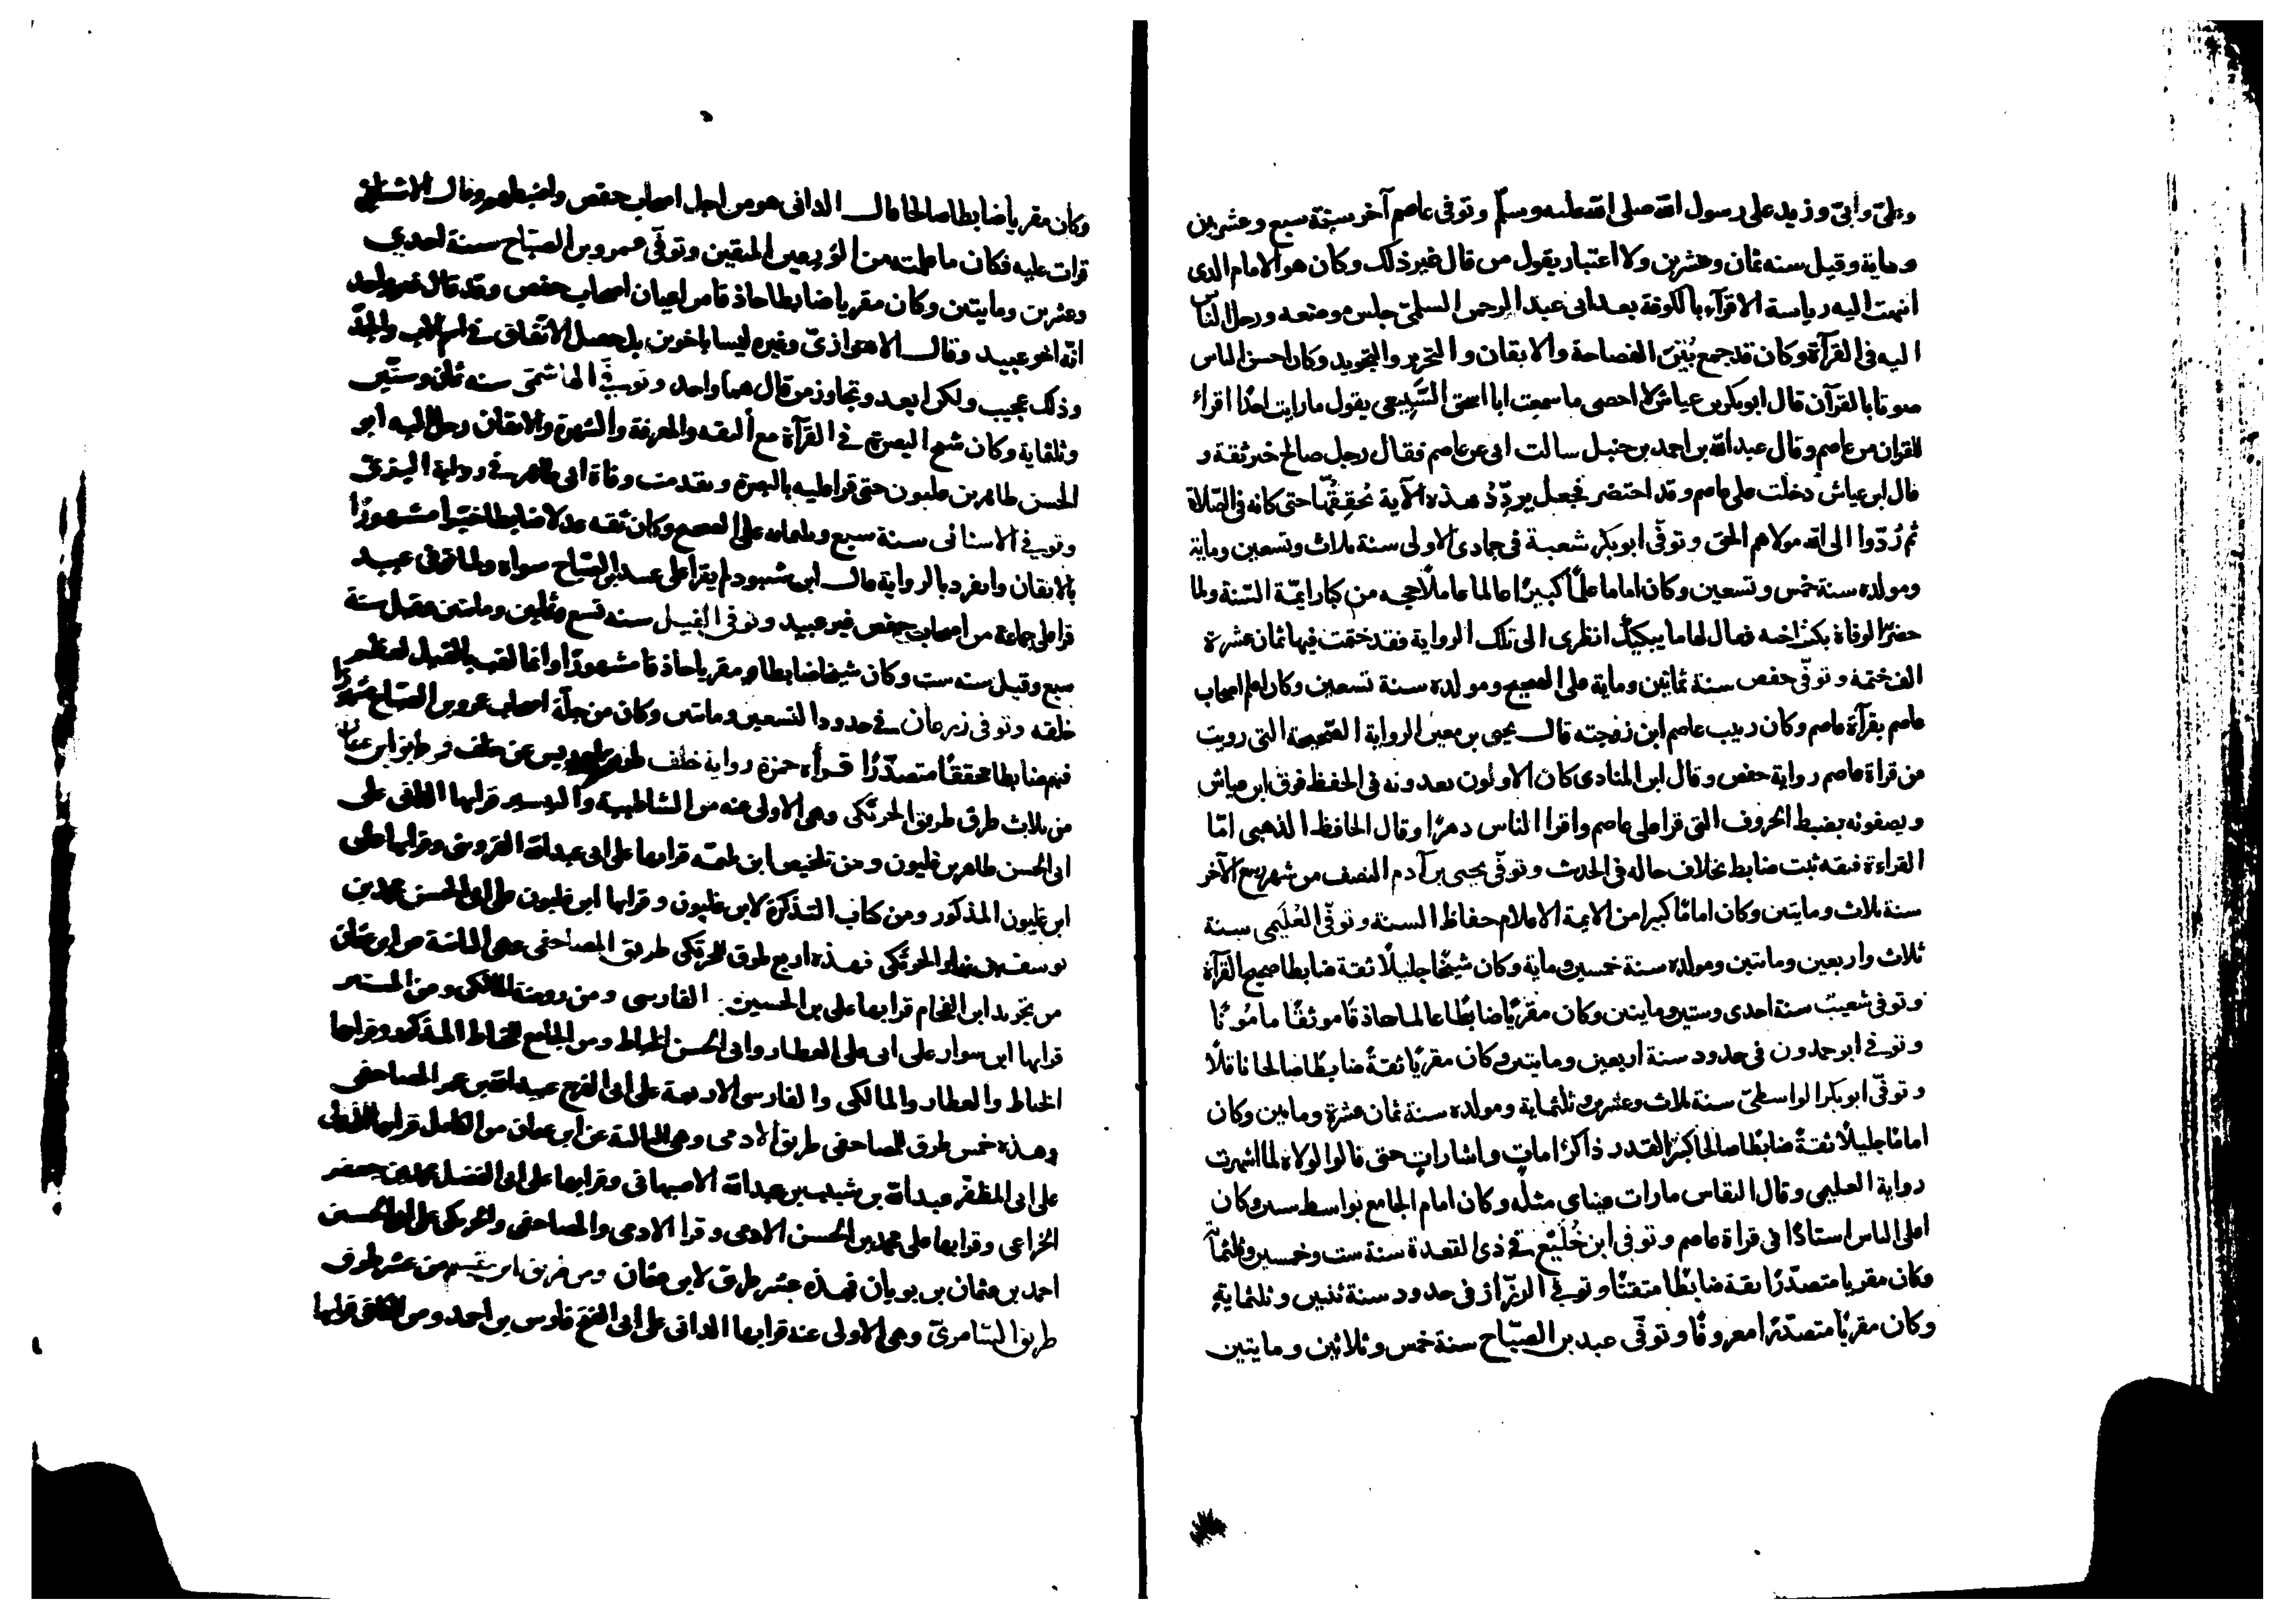 وعلى وأبى وزيد على رسول الله صلى الله عليه وسلم وتوفى عاصم آخر سنة سبع وعشرين
وماية وقيل سنه ثمان وعشرين ولا اعتبار بقول من قال غير ذلك وكان هو الامام الذى
انتهت اليه رياسة الاقرآء بالكوفة بعد ابى عبد الرحمن السلمى جلس موضعه ورحل الناس
اليه فى القرآة وكان قد جمع بين الفصاحة والاتقان والتحرير والتجويد وكان احسن الناس
صوتا بالقرآن قال ابو بكر بن عياش لا احصى ما سمعت ابا اسحق السبيعى يقول ما رايت احدًا اقراء
للقران من عاصم وقال عبد الله بن احمد بن حنبل سالت ابى عن عاصم فقال رجل صالح خير ثقة و
قال ابن عياش دخلت على عاصم وقد احتضر فجعل يردّدُ هذه الآية يُحقِقُها حتى كانه فى الصّلاة
ثم رُدّوا الى الله مولاهم الحق وتوفّى ابو بكر شعبة فى جمادى الاولى سنة ثلاث وتسعين وماية
ومولده سنة خمس وتسعين وكان اماما علمًا كبيرًا عالما عاملًا حجه من كبار ايمّة السّنة ولما
حضرّ الوفاة بكت اخته فقال لها ما يبكيك انظرى الى تلك الزواية فقد ختمت فيها ثمان عشرة
الف ختمة وتوفّى حفص سنة ثمانين وماية على الصحيح ومولده سنة تسعين وكان اعلم اصحاب
عاصم بقرآة عاصم وكان ربيب عاصم ابن زوجته قال يحيى بن معين الرواية الصّحيحة التى رويت
من قراة عاصم رواية حفص وقال ابن المنادى كان الاولون يعدونه فى الحفظ فوق ابن عياش
ويصفونه بضبط الحروف التى قرا على عاصم واقرا الناس دهرًا وقال الحافظ الذهبى امّا
القراءة فثقه ثبت ضابط بخلاف حاله فى الحديث وتوفّى يحيى بن آدم النصف من شهر ربيع الآخر
سنة ثلاث ومايتين وكان امامًا كبيرا من الايمة الاعلام حفاظ السنة وتوفّى العُلَيمى سنة
ثلاث واربعين ومايتين ومولده سنة خمسين وماية وكان شيخًا جليلًا ثقة ضابطا صحيح القرآة
وتوفى شعيب سنة احدى وستين ومايتين وكان مقريًا ضابطًا عالما حاذقًا موثقًا مامُونًا
وتوفى ابو حمدون فى حدود سنة اربعين ومايتين وكان مقريًا ثقةً ضابطًا صالحا ناقلًا
وتوفّى ابو بكر الواسطىّ سنة ثلاث وعشرين وثلثماية ومولده سنة ثمان عشرة ومايتين وكان
امامًا جليلًا ثقةً ضابطًا صالحا كبير القدر ذا كرامات واشارات حتى قالوا لولاه لما اشتهرت
رواية العليمى وقال النقاش ما رات عيناى مثله وكان امام الجامع بواسط سنين وكان
اعلى الناس استادًا فى قراة عاصم وتوفى ابن خُلَيْع فى ذى القعدة سنة ست وخمسين وثلثماية
وكان مقريا متصدّرًا ثقة ضابطًا متقنًا وتوفى الرزّاز فى حدود سنة ثنين وثلثماية
وكان مقريًا متصدّرًا معروفًا وتوفّى عبيد بن الصّباح سنة خمس وثلاثين ومايتين
وكان مقريا ضابطا صالحا قال الدانى هو من اجل اصحاب حفص واضبطهم وقال الاشنانى
قرات عليه فكان ما علمته من الورعين المتقين وتوفّى عمرو بن الصبّاح سنة احدى
وعشرين ومايتين وكان مقريا ضابطا حاذقا من اعيان اصحاب حفص وقد قال غير واحد
انّه اخو عبيد وقال الاهوازىّ وغيره ليسا باخوين بل حصل الاتّفاق فى اسم الاب والجدّ
وذلك عجيب ولكن ابعد وتجاوز من قال هما واحد وتوفى الهاشمى سنه ثمان وستّين
وثلثماية وكان شيخ البصرة فى القرآة مع الثقه والمعرفة والشهرة والاتقان رحل اليه ابو
الحسن طاهر بن غلبون حتى قرا عليه بالبصرة وتقدمت وفاة ابى طاهر فى رواية البزىّ
وتوفى الاشنانى سنة سبع وثلثمايه على الصحيح وكان ثقه عدلا ضابطا خيّرا مشهورًا
بالاتقان وانفرد بالرواية قال ابن شنبوذ لم يقرا على عبيد بن الصبّاح سواه ولما توفى عبيد
قرا على جماعة من اصحاب حفص غير عبيد وتوفى الفيل سنه تسع وثمانين ومايتين وقيل سنة
سبع وقيل سنه ست وكان شيخا ضابطا ومقريا حاذقا مشهورًا وانما لقب بالفيل لعظم
خلقه وتوفى زرعان فى حدود التسعين ومايتين وكان من جلّة اصحاب عمرو بن الصبّاح مشهورًا
فيهم ضابطا محققًا متصدّرًا قرأة حمزة رواية خلف طريق ادريس عن خلف فمن طريق ابن عثمان
من ثلاث طرق طريق الحرتكى وهى الاولى عنه من الشاطبية والتيسير قرا بها الدانى على
ابى الحسن طاهر بن غلبون ومن تلخيص ابن بليمه قرا بها على ابى عبد الله القزوينى وقرا بها على
ابن غلبون المذكور ومن كتاب التذكرة لابن غلبون وقرا بها ابن غلبون على ابى الحسن محمد بن
يوسف بن نهار الحرتكى فهذه اربع طرق للحرتكى طريق المصاحفى وهى الثانية عن ابن عثمان
من تجريد ابن الفحام قرا بها على بن الحسين الفارسى ومن روضة المالكى ومن المستنير
قرا بها ابن سوار على ابى على العطار وابى الحسن الخياط ومن الجامع للخياط المذكور وقرا بها
الخياط والعطار والمالكى والفارسى الاربعة على ابى الفرج عبيد الله بن عمر المصاحفى
وهذه خمس طرق للمصاحفى طريق الادمى وهى الثالثة عن ابن عثمان من الكامل قرا بها الهذلى
على ابى المظفّر عبد الله بن شبيب بن عبد الله الاصبهانى وقرا بها على ابى الفضل محمد بن جعفر
الخزاعى وقرا بها على محمد بن الحسن الادمى وقرا الادمى والمصاحفى والحرتكى على ابى الحسين
احمد بن عثمان بن بويان فهذه عشر طرق لابن عثمان ومن طريق ابن مقسم من عشر طرق
طريق السّامرىّ وهى الاولى عنه قرا بها الدانى على ابى الفتح فارس بن احمد ومن الكافى قرا بها